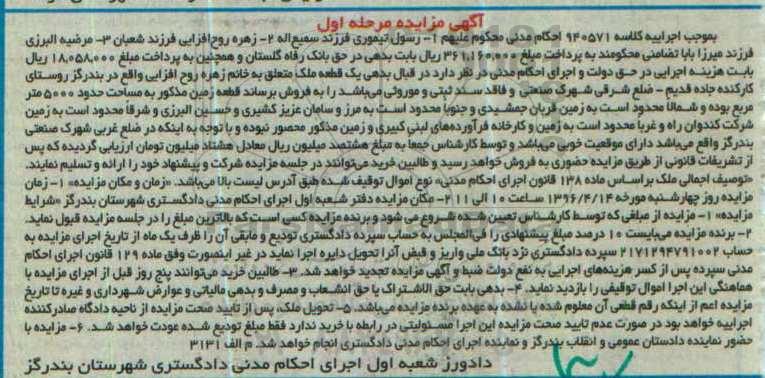 آگهی مزایده مرحله اول
بموجب اجراییه کلاسه ۹۴۰۵۷۱ احکام مدنی محکوم علیهم ۱- رسول تیموری فرزند سمیع‌اله ۲- زهره روح‌افزایی فرزند شعبان ۳- مرضیه البرزی
فرزند میرزا بابا تضامنی محکومند به پرداخت مبلغ ۳۶۱,۱۶۰,۰۰۰ ریال بابت بدهی در حق بانک رفاه گلستان و همچنین به پرداخت مبلغ ۱۸,۰۵۸,۰۰۰ ریال
بابت هزینه اجرایی در حق دولت و اجرای احکام مدنی در نظر دارد در قبال بدهی یک قطعه ملک متعلق به خانم زهره روح افزایی واقع در بندرگز روستای
کارکنده جاده قدیم - ضلع شرقی شهرک صنعتی و فاقد سند ثبتی و موروثی می‌باشد را به فروش برساند قطعه زمین مذکور به مساحت حدود ۵۰۰۰ متر
مربع بوده و شمالا محدود است به زمین قربان جمشیدی و جنوبا محدود است به مرز و سامان عزیز کشیری و حسین البرزی و شرقا محدود است به زمین
شرکت کندوان راه و غربا محدود است به زمین و کارخانه فرآورده‌های لبنی کبیری و زمین مذکور محصور نبوده و با توجه به اینکه در ضلع غربی شهرک صنعتی
بندرگز واقع می‌باشد دارای موقعیت خوبی می‌باشد و توسط کارشناس جمعا به مبلغ هشتصد میلیون ریال معادل هشتاد میلیون تومان ارزیابی گردیده که پس
از تشریفات قانونی از طریق مزایده حضوری به فروش خواهد رسید و طالبین خرید می‌توانند در جلسه مزایده شرکت و پیشنهاد خود را ارائه و تسلیم نمایند.
«توصیف اجمالی ملک براساس ماده ۱۳۸ قانون اجرای احکام مدنی» نوع اموال توقیف شده طبق آدرس لیست بالا می‌باشد. «زمان و مکان مزایده» ۱- زمان
مزایده روز چهارشنبه مورخه ۱۳۹۶/۴/۱۴ ساعت ۱۰ الی ۱۱ ۲- مکان مزایده دفتر شعبه اول اجرای احکام مدنی دادگستری شهرستان بندرگز «شرایط
مزایده» ۱- مزایده از مبلغی که توسط کارشناس تعیین شده شروع می شود و برنده مزایده کسی است که بالاترین مبلغ را در جلسه مزایده قبول نماید.
۲- برنده مزایده می‌بایست ۱۰ درصد مبلغ پیشنهادی را فی‌المجلس به حساب سپرده دادگستری تودیع و مابقی آن را ظرف یک ماه از تاریخ اجرای مزایده به
حساب ۲۱۷۱۲۹۴۷۹۱۰۰۲ سپرده دادگستری نزد بانک ملی واریز و قبض آنرا تحویل دایره اجرا نماید در غیر اینصورت وفق ماده ۱۲۹ قانون اجرای احکام
مدنی سپرده پس از کسر هزینه‌های اجرایی به نفع دولت ضبط و آگهی مزایده تجدید خواهد شد. ۳- طالبین خرید می‌توانند پنج روز قبل از اجرای مزایده با
هماهنگی این اجرا اموال توقیفی را بازدید نماید. ۴- بدهی بابت حق الاشتراک یا حق انشعاب و مصرف و بدهی مالیاتی و عوارض شهرداری و غیره تا تاریخ
مزایده اعم از اینکه رقم قطعی آن معلوم شده یا نشده به عهده برنده مزایده می‌باشد. ۵- تحویل ملک، پس از تایید صحت مزایده از ناحیه دادگاه صادرکننده
اجراییه خواهد بود در صورت عدم تایید صحت مزایده این اجرا مسئولیتی در رابطه با خرید ندارد فقط مبلغ تودیع شده عودت خواهد شد. ۶- مزایده با
حضور نماینده دادستان عمومی و انقلاب بندرگز و نماینده اجرای احکام مدنی دادگستری انجام خواهد شد. م الف ۳۱۳۱
دادورز شعبه اول اجرای احکام مدنی دادگستری شهرستان بندرگز